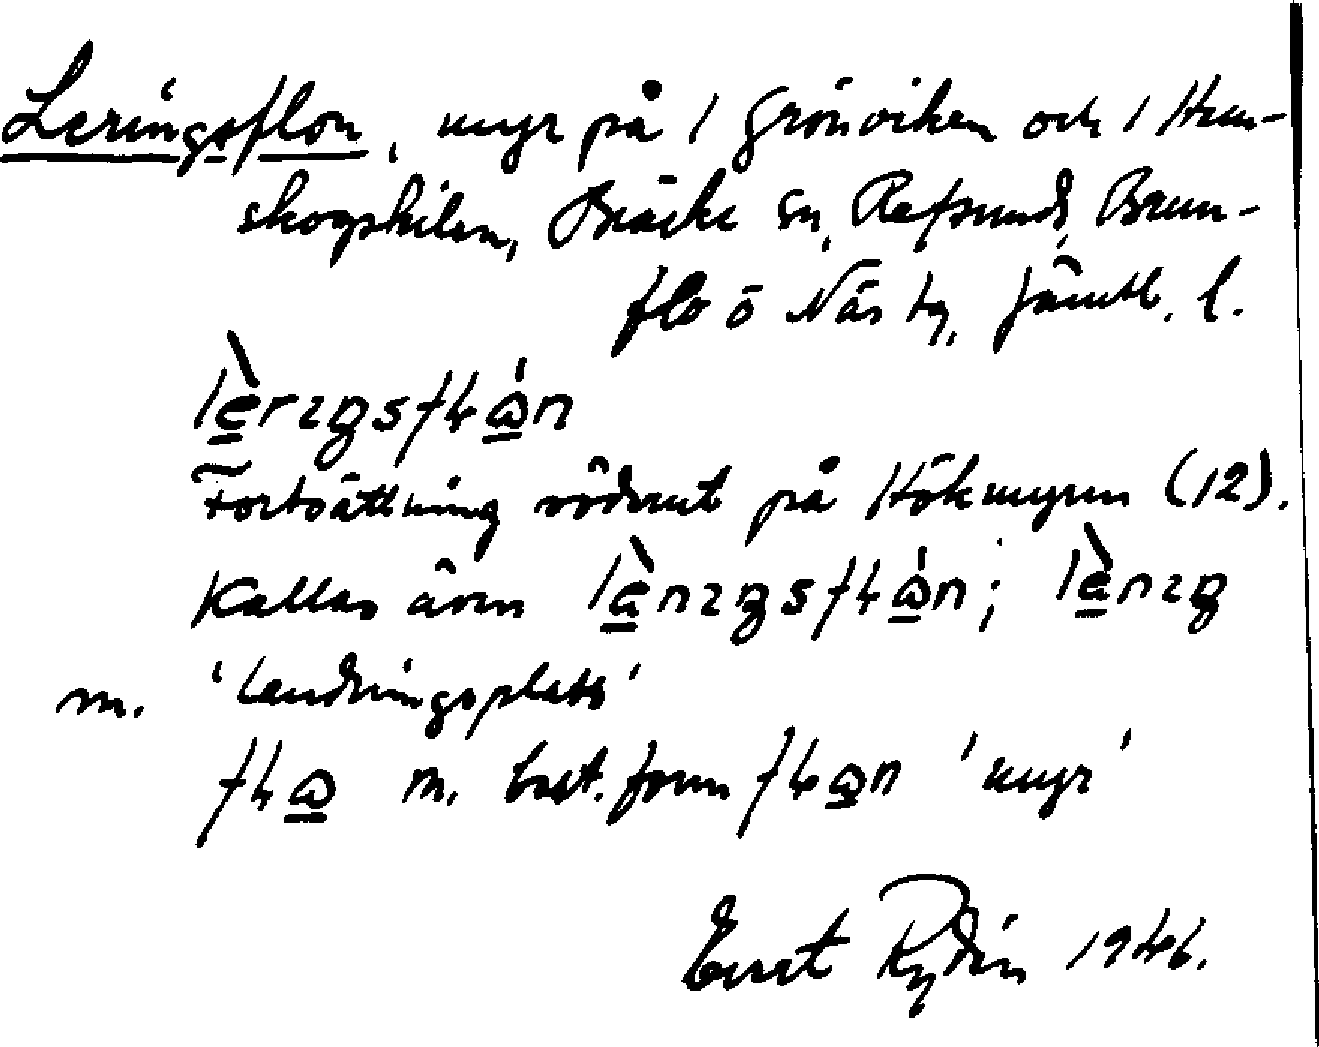 Leringsflon, myr på 1 Grönviken och 1 Hun-
skogskilen, Bräcke sn, Refsund, Brun-
flo o Näs tg, Jämtl. l.
lè̱rıŋsfɫώ̱n
Fortsättning söderut på Hökmyren (12).
Kallas även là̱nıŋsfɫώ̱n; là̱nıŋ
m. 'landningsplats'
fɫω̱ m. best. form fɫω̱n 'myr'
Ernst Rydén 1946.